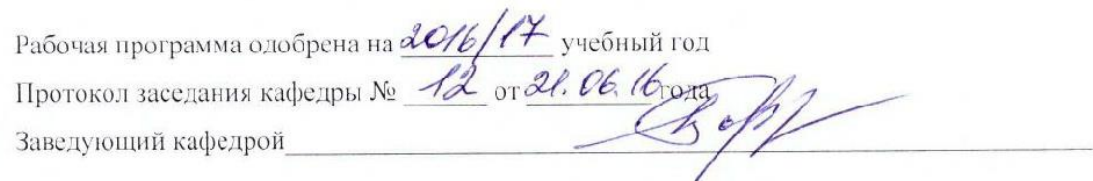 Рабочая программа одобрена на 2016/17 учебный год
Протокол заседания кафедры № 12 от 21.06.16 года
Заведующий кафедрой